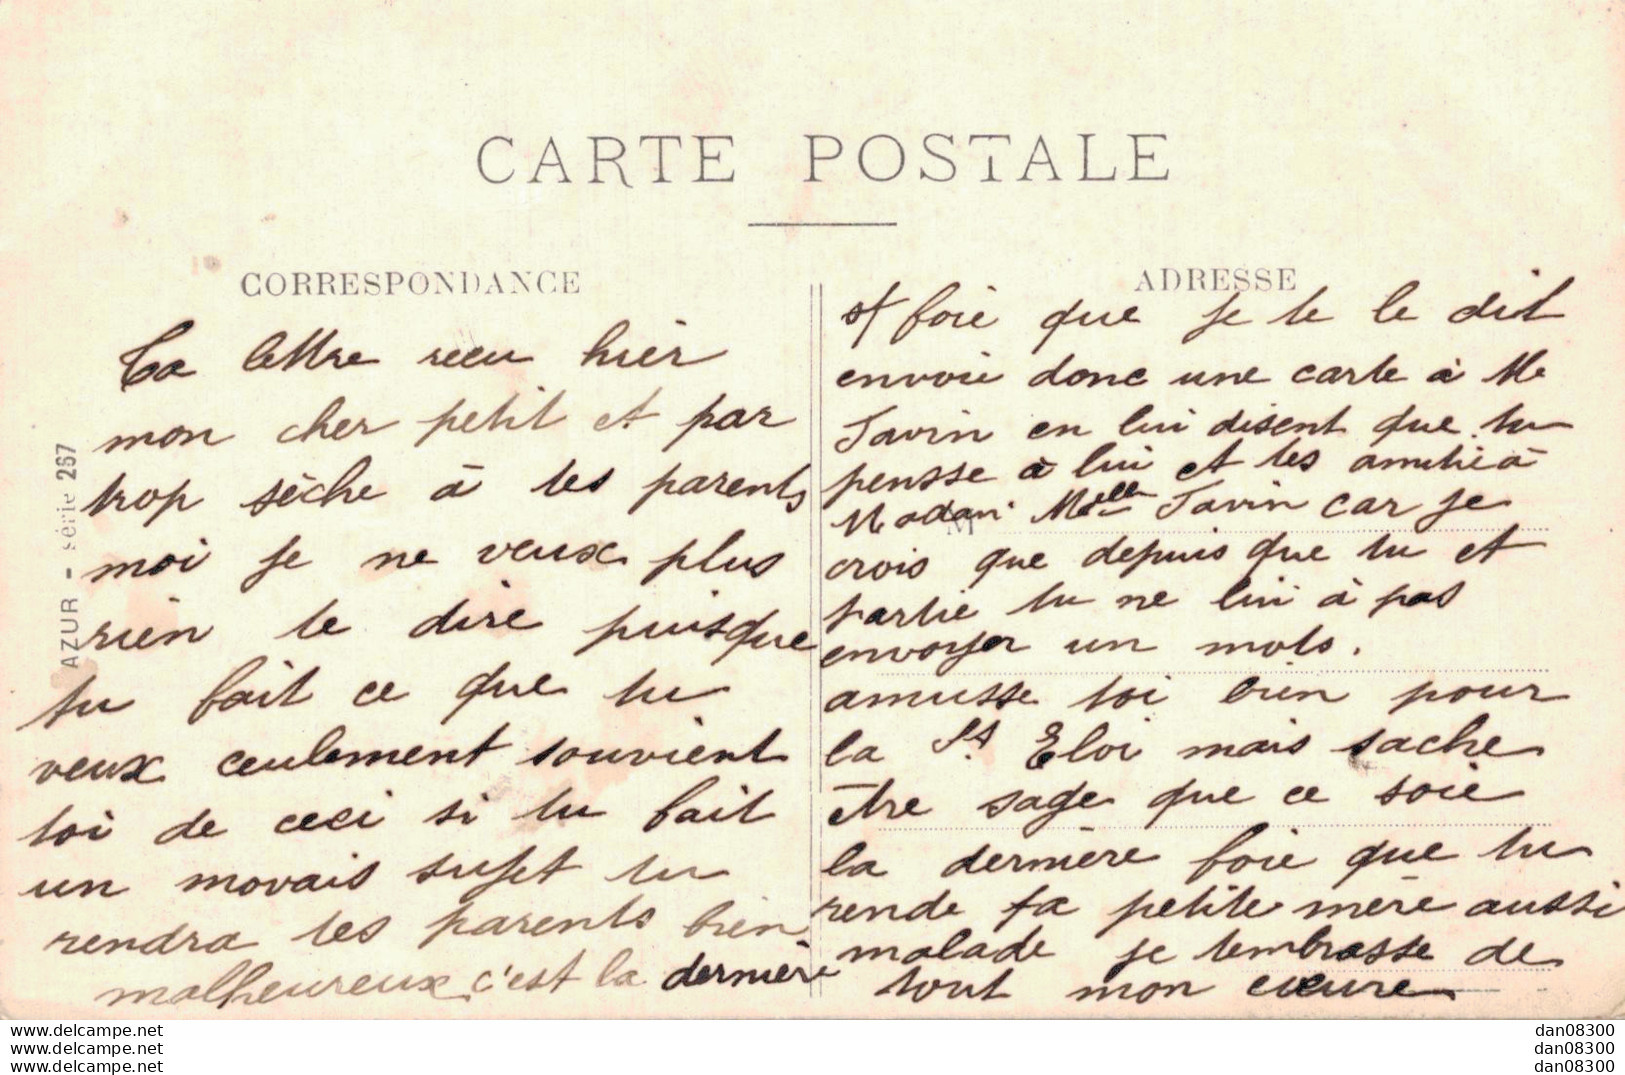 CARTE POSTALE
CORRESPONDANCE
ta lettre reçu hier
mon cher petit et par
trop sèche à tes parents
moi je ne veux plus
rien te dire puisque
tu fait ce que tu
veux ceulement souvient
toi de ceci si tu fait
un movais sujet tu
rendra tes parents bien
malheureux c'est la dernière
ADRESSE
foie que je te le dit
envoie donc une carte à Me
Javin en lui disent que tu
pensse à lui et tes amitié à
Madam Melle Javin car je
crois que depuis que tu et
partie tu ne lui à pas
envoyer un mots.
amusse toi bien pour
la St Eloi mais sache
être sage que ce soie
la dernière foie que tu
rende ta petite mère aussi
malade je tembrasse de
tout mon cœure
AZUR - série 267
www.delcampe.net
www.delcampe.net
www.delcampe.net
dan08300
dan08300
dan08300